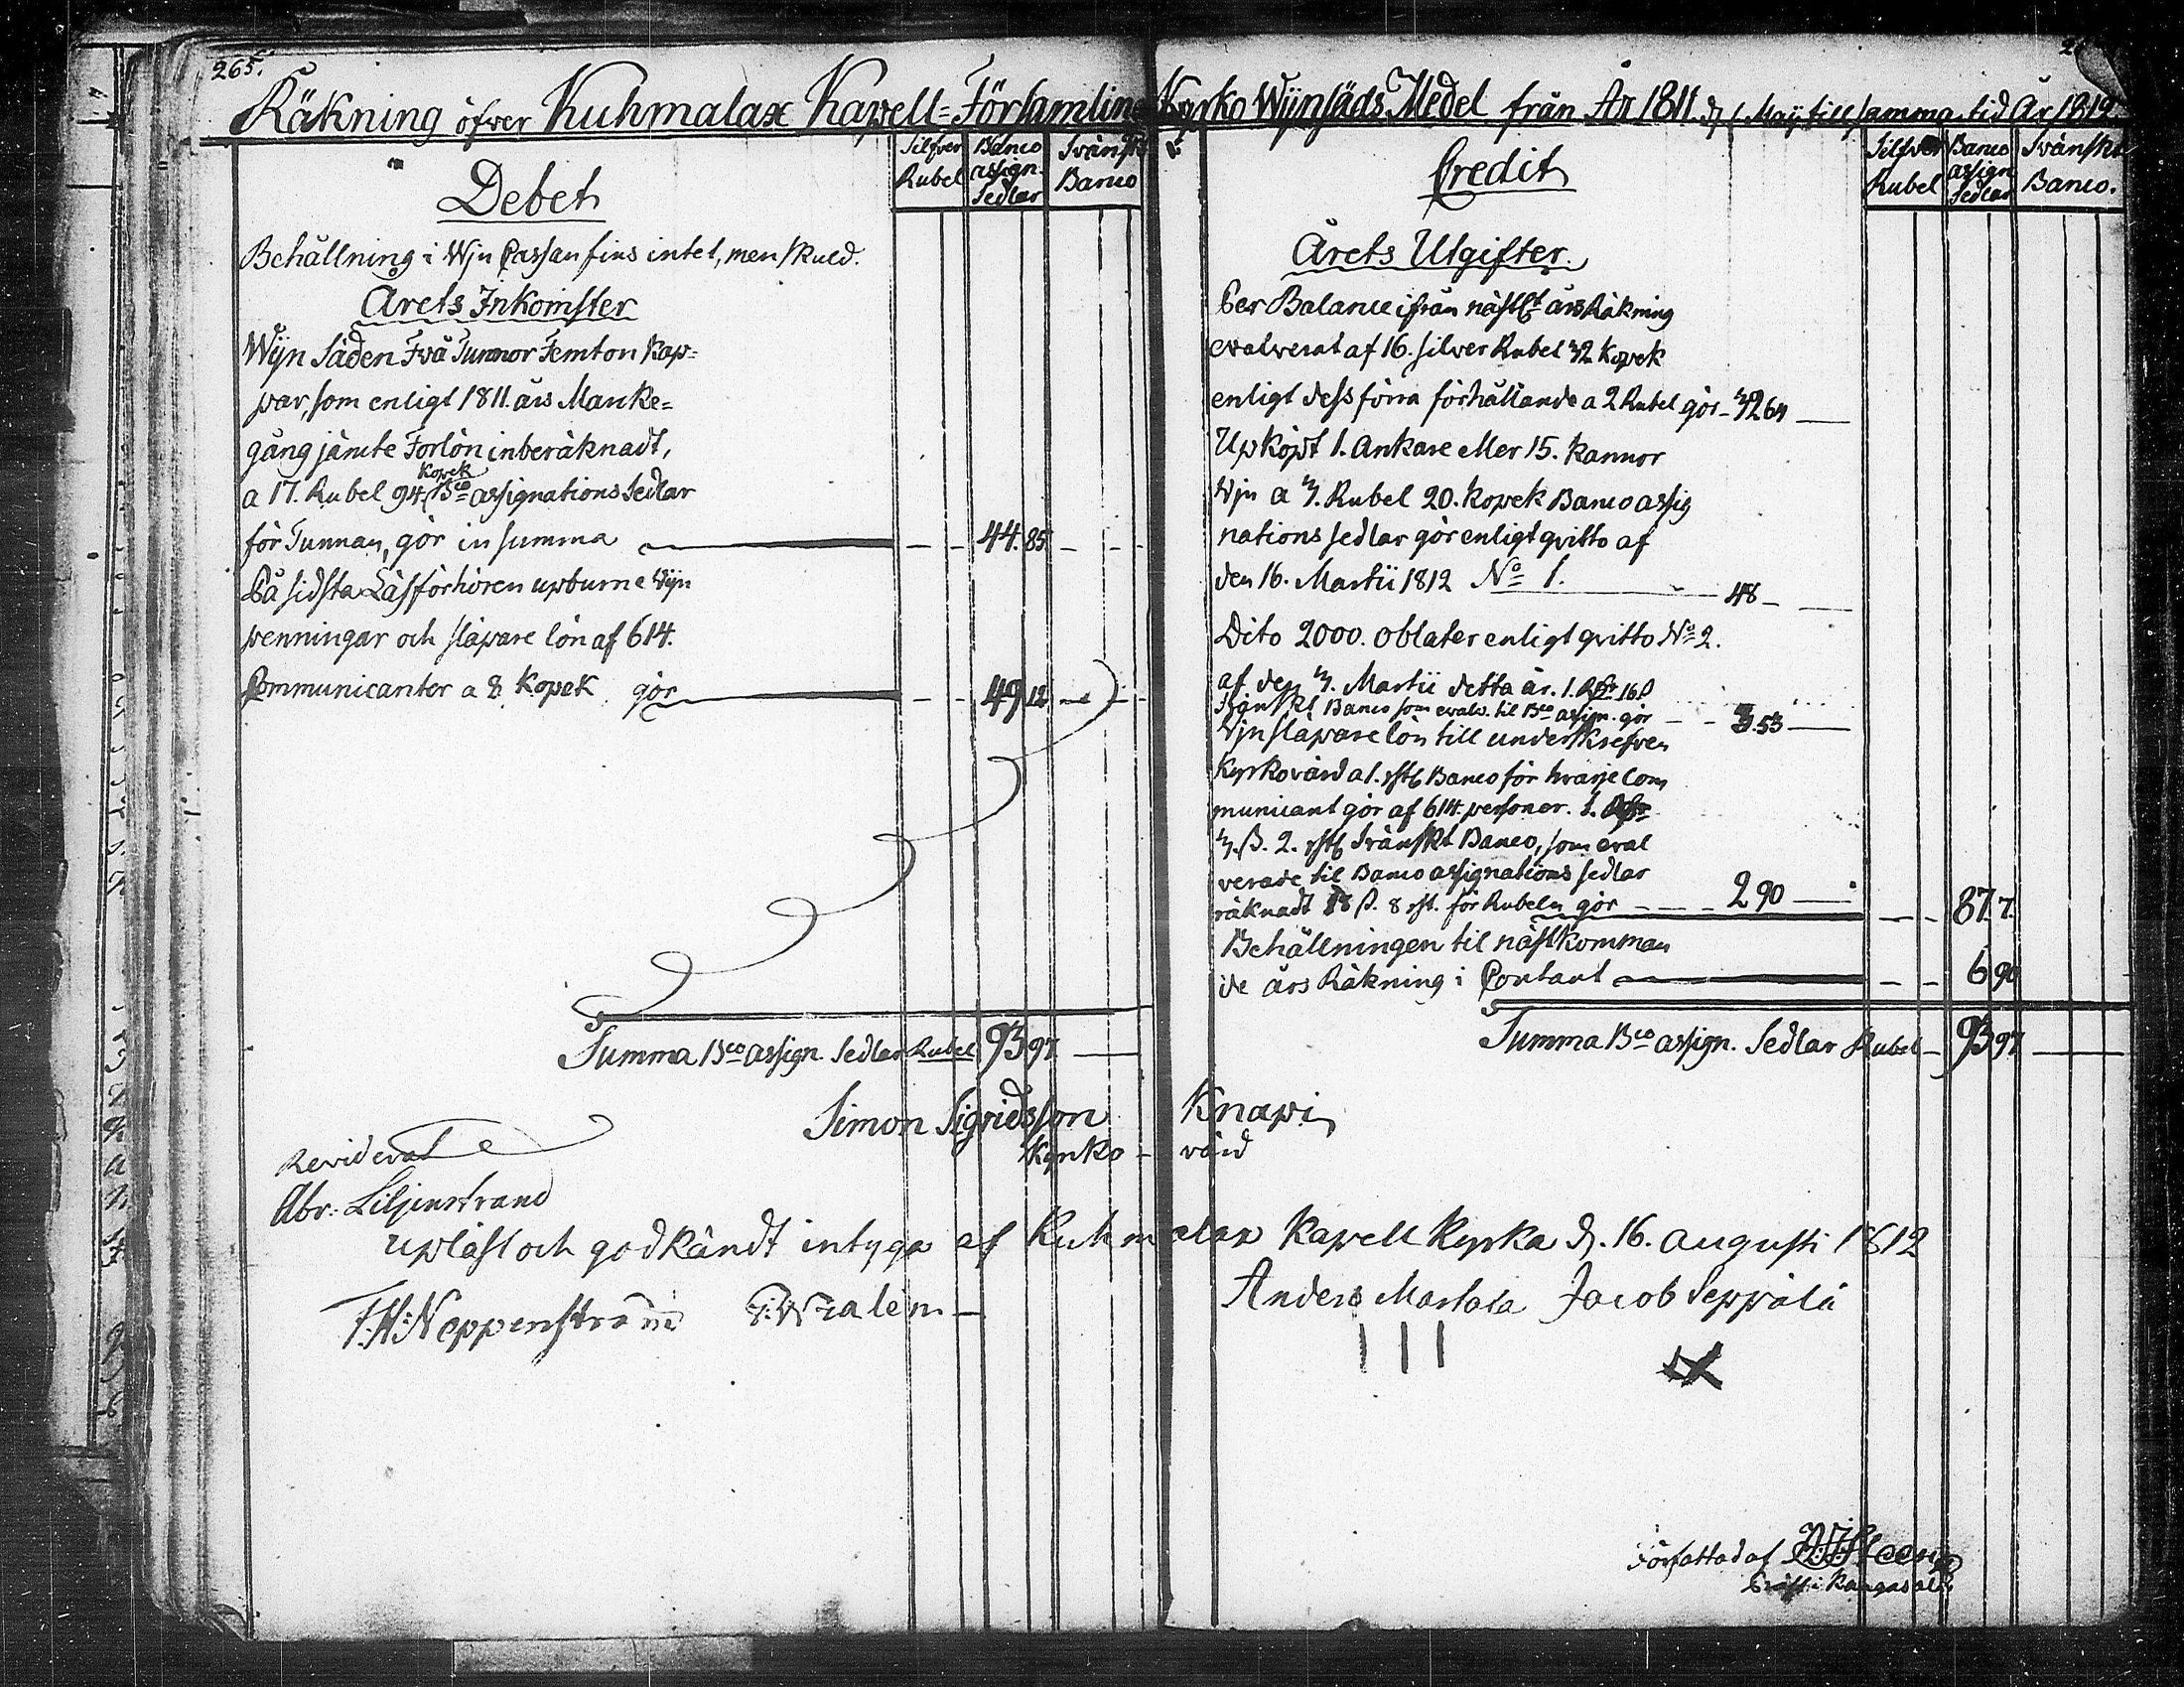 265.
Räkning öfver Kuhmalax Kapell-Församlings Kyrko Wijnsäds Medel från År 1811 d. 1 Maÿ till samma tid År 1812.
Silfver Rubel
Banco assign. Sedlar
Svänskt Banco
Debet
Behållning i Wjn Cassan fins intet, men skuld.
Årets Inkomster
Wijn Säden Två Tunnor Femton Kap-
par, som enligt 1811. års Marke-
gång jämte Forlön inberäknadt,
a 17. Rubel 94. Kopek Bco assignations Sedlar
för Tunnan, gör in summa — — 44. 85 — — —
På sidsta Läsförhören upburne Wijn
penningar och släpare lön af 614.
Communicanter a 8 Kopek gör — — 49 12
Summa Bco assign. Sedlar Rubel 93 97 —
Silfver Rubel
Banco assign Sedlar
Svänskt Banco.
Credit
Årets Utgifter.
Per Balance ifrån nästl. års Räkning
evalverat af 16. silver Rubel 32 Kopek
enligt dess förra förhållande a 2 Rubel gör - 32 64 —
Upköpt 1. Ankare eller 15. Kannor
Wjn a 3. Rubel 20. Kopek Banco assig
nations sedlar gör enligt qvitto af
den 16. Martii 1812 No 1. — 48 — —
Dito 2000. Oblater enligt qvitto No 2.
af den 3. Martii detta år. 1. Rdr 16 ß
Svänskt Banco som evalv. til Bco assign. gör — — 3. 53 —
Wjn släpare lön till underskrefven
Kyrkovärd a 1. rst. Banco för hvarje Com
municant gör af 614. personer. 1. Rdr
3. ß. 2. rst. Svänskt Banco, som eval
verade til Banco assignations sedlar
räknadt 18 ß. 8 rst. för Rubeln gör — — — 2 90 — — — 87. 7.
Behållningen til nästkomman
de års Räkning i Contant — — — 6 90
Summa Bco assign. Sedlar Rubel — 93 97 —
Simon Sigridsson Knapi
Kyrko - värd
Reviderat
Abr. Liljenstrand
upläst och godkändt intyga af Kuhmalax Kapell Kyrka d. 16. Augusti 1812
Anders Jacob Seppälä
Författad af
i Kangasala